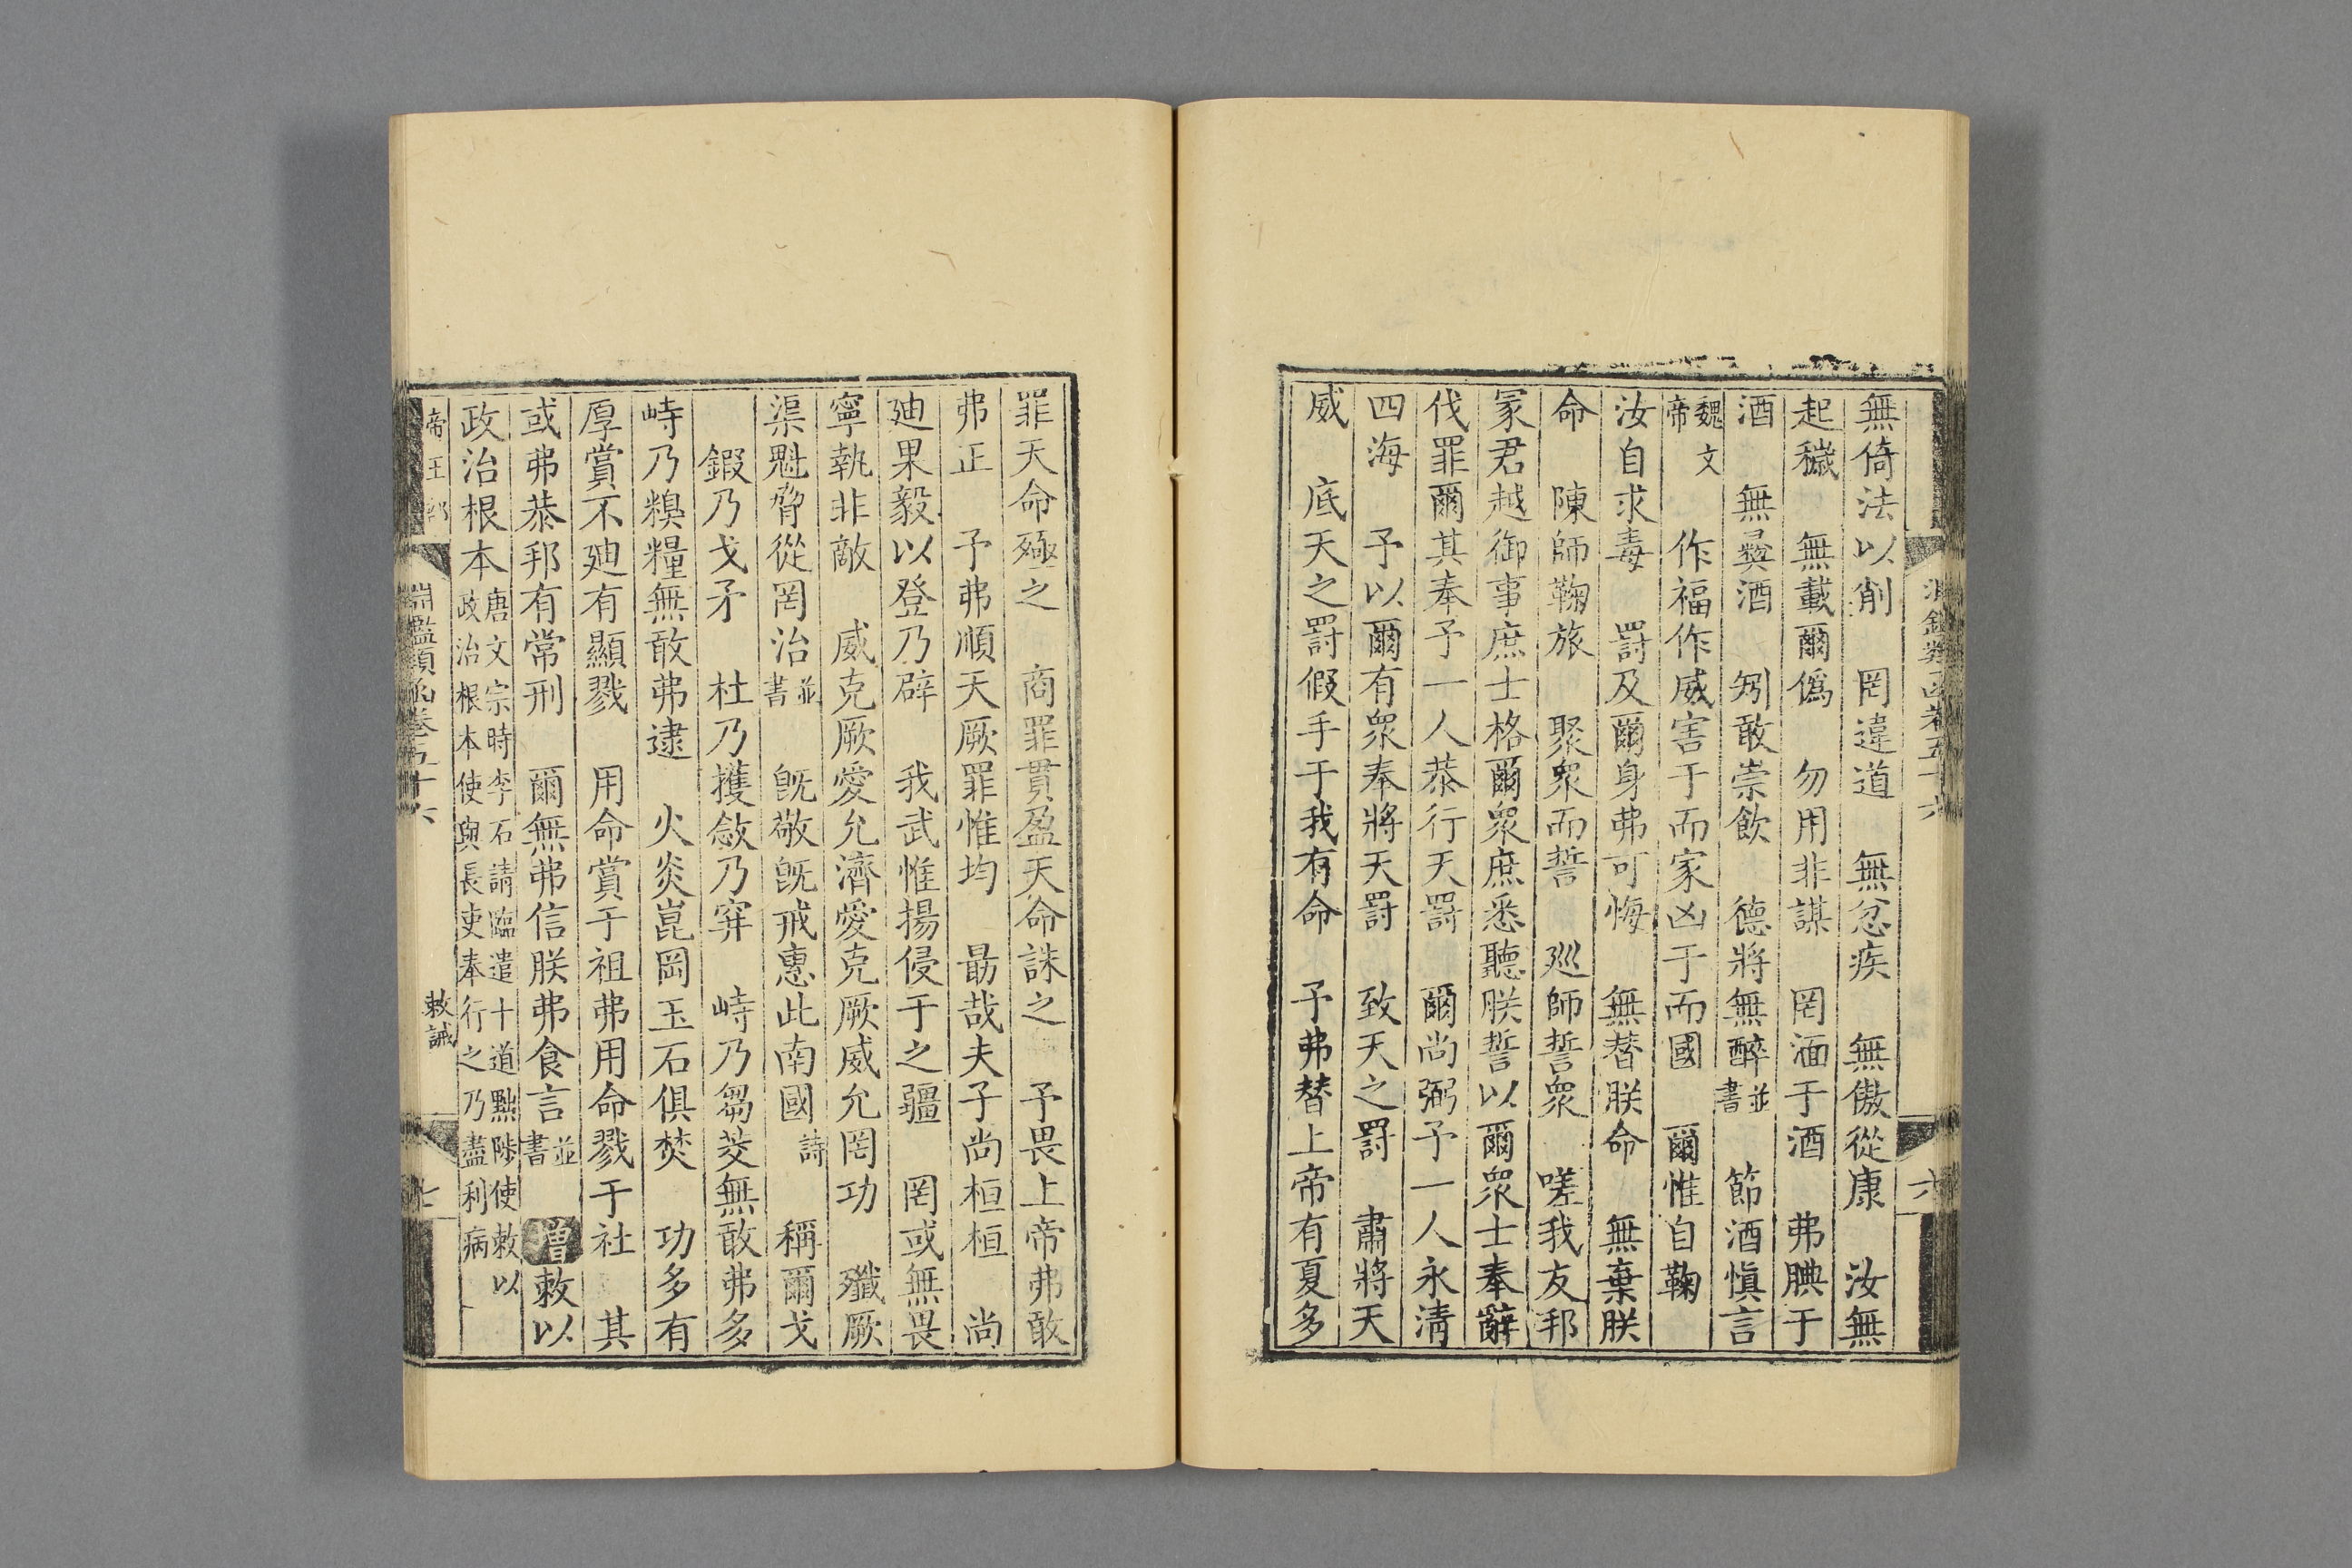 無倚法以削　罔違道　無忿疾　無傲從康　汝無
起穢　無載爾僞　勿用非謀　罔湎于酒　弗腆于
酒　無彝酒　矧敢崇飲　德將無醉並書　節酒愼言
魏文帝　作福作威害于而家凶于而國　爾惟自鞠
汝自求毒　罰及爾身弗可悔　無替朕命　無棄朕
命　陳師鞠旅　聚衆而誓　巡師誓衆　嗟我友邦
冢君越御事庶士格爾衆庶悉聽朕誓以爾衆士奉辭
伐罪爾其奉予一人恭行天罰　爾尚弼予一人永清
四海　予以爾有衆奉將天罰　致天之罰　肅將天
威　底天之罰假手于我有命　予弗替上帝有夏多
罪天命殛之　商罪貫盈天命誅之　予畏上帝弗敢
弗正　予弗順天厥罪惟均　勗哉夫子尚桓桓　尚
廸果毅以登乃辟　我武惟揚侵于之疆　罔或無畏
寧執非敵　威克厥愛允濟愛克厥威允罔功　殲厥
渠魁脅從罔治並書　旣敬旣戒惠此南國詩　稱爾戈
鍜乃戈矛　杜乃擭敜乃穽　峙乃芻茭無敢弗多
峙乃糗糧無敢弗逮　火炎崑岡玉石俱焚　功多有
厚賞不廸有顯戮　用命賞于祖弗用命戮于社　其
或弗恭邦有常刑　爾無弗信朕弗食言並書　增敕以
政治根本唐文宗時李石請臨遣十道黜陟使敕以政治根本使與長吏奉行之乃盡利病
帝王部　淵鑑類函卷五十六　敕誡　七
淵鑑類函卷五十六　六